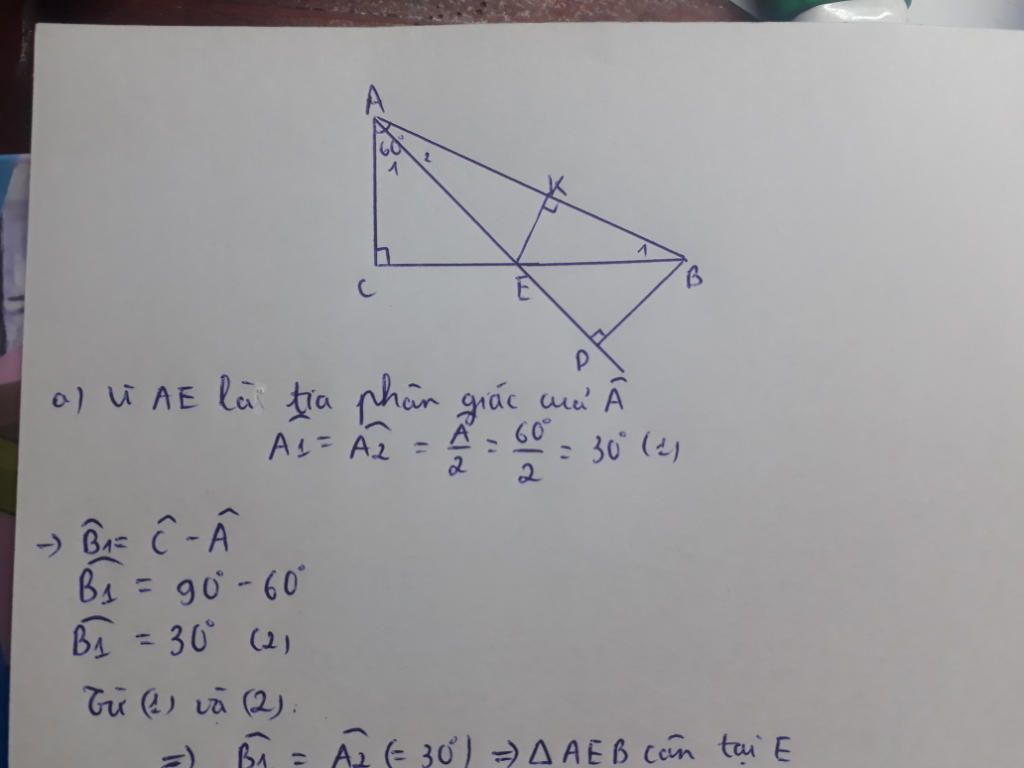 A
60°
1
2
K
1
C
E
B
D
a) Vì AE là tia phân giác của Â
Â1 = Â2 = Â/2 = 60°/2 = 30° (1)
→ B̂1 = Ĉ - Â
B̂1 = 90° - 60°
B̂1 = 30° (2)
Từ (1) và (2).
=> B̂1 = Â2 (= 30°) => Δ AEB cân tại E